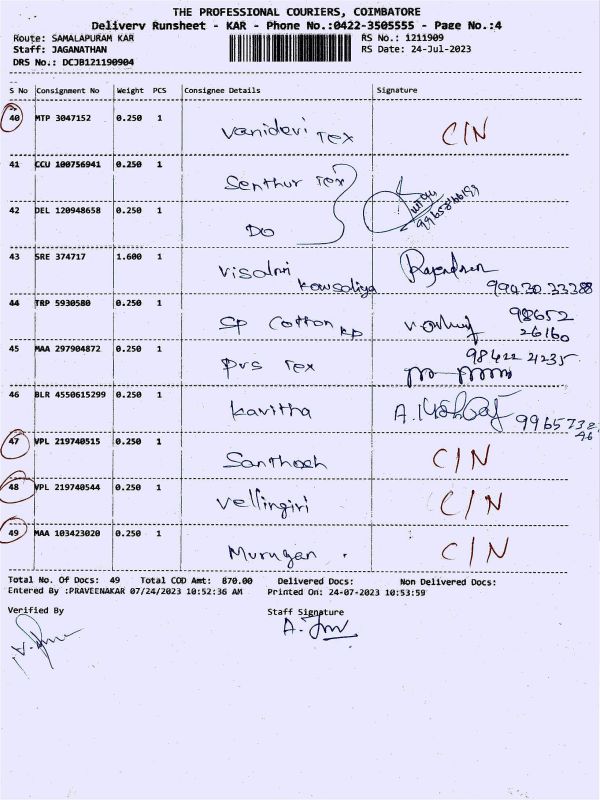 THE PROFESSIONAL COURIERS, COIMBATORE
Delivery Runsheet - KAR - Phone No.:0422-3505555 - Page No.:4
Route: SAMALAPURAM KAR RS No.: 1211909
Staff: JAGANATHAN RS Date: 24-Jul-2023
DRS No.: DCJB121190904
S No Consignment No Weight PCS Consignee Details Signature
40 MTP 3047152 0.250 1 Vanidevi Tex C/N
41 CCU 100756941 0.250 1 Senthur Tex
42 DEL 120948658 0.250 1 Do
43 SRE 374717 1.600 1 Visalni Kowsaliya Rajendran 99430 33388
44 TRP 5930580 0.250 1 SP Cotton KP 98652 26160
45 MAA 297904872 0.250 1 PVS Tex 98422 4235
46 BLR 4550615299 0.250 1 Kavitha A. 9965732 46
47 VPL 219740515 0.250 1 Santhosh C/N
48 VPL 219740544 0.250 1 Vellingiri C/N
49 MAA 103423020 0.250 1 Murugan C/N
Total No. Of Docs: 49 Total COD Amt: 870.00 Delivered Docs: Non Delivered Docs:
Entered By :PRAVEENAKAR 07/24/2023 10:52:36 AM Printed On: 24-07-2023 10:53:59
Verified By Staff Signature